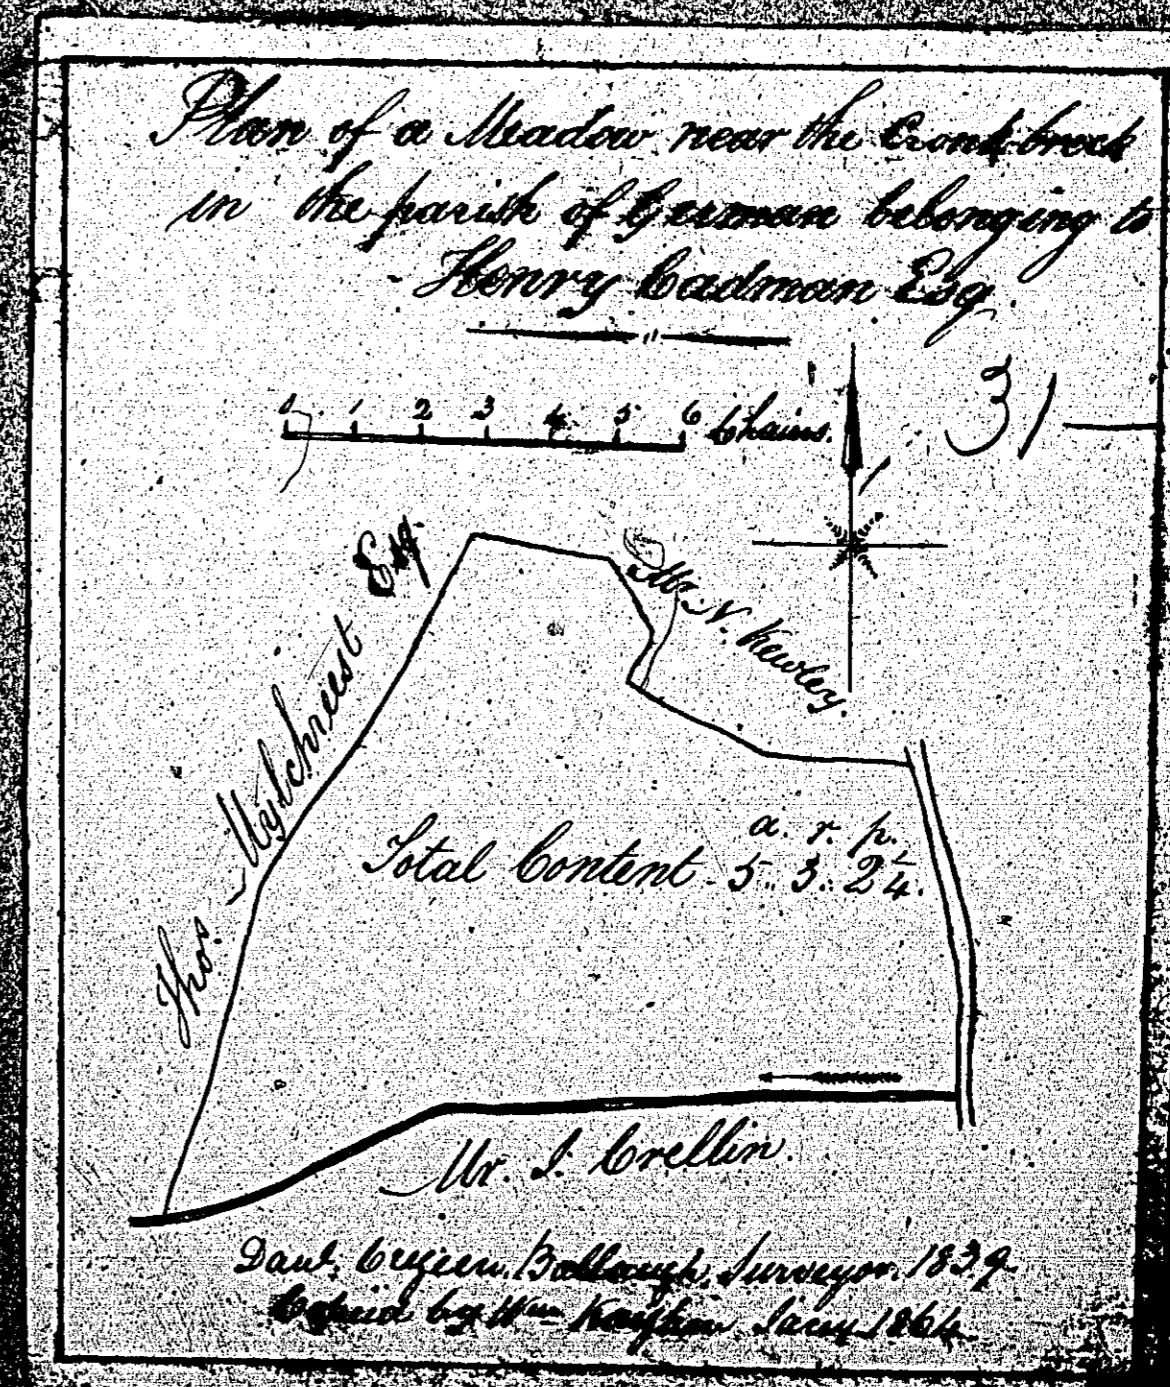 Plan of a Meadow near the Cronk-brock
in the parish of German belonging to
Henry Cadman Esq.
0 1 2 3 4 5 6 Chains.
31
Thos Mylchreest Esq.
Mr. N. Kewley.
a. r. p.
Total Content 5.. 3.. 2 1/4.
Mr. J. Crellin.
Danl. Cregeen, Ballaugh, Surveyor, 1839.
Copied by Wm 1864.